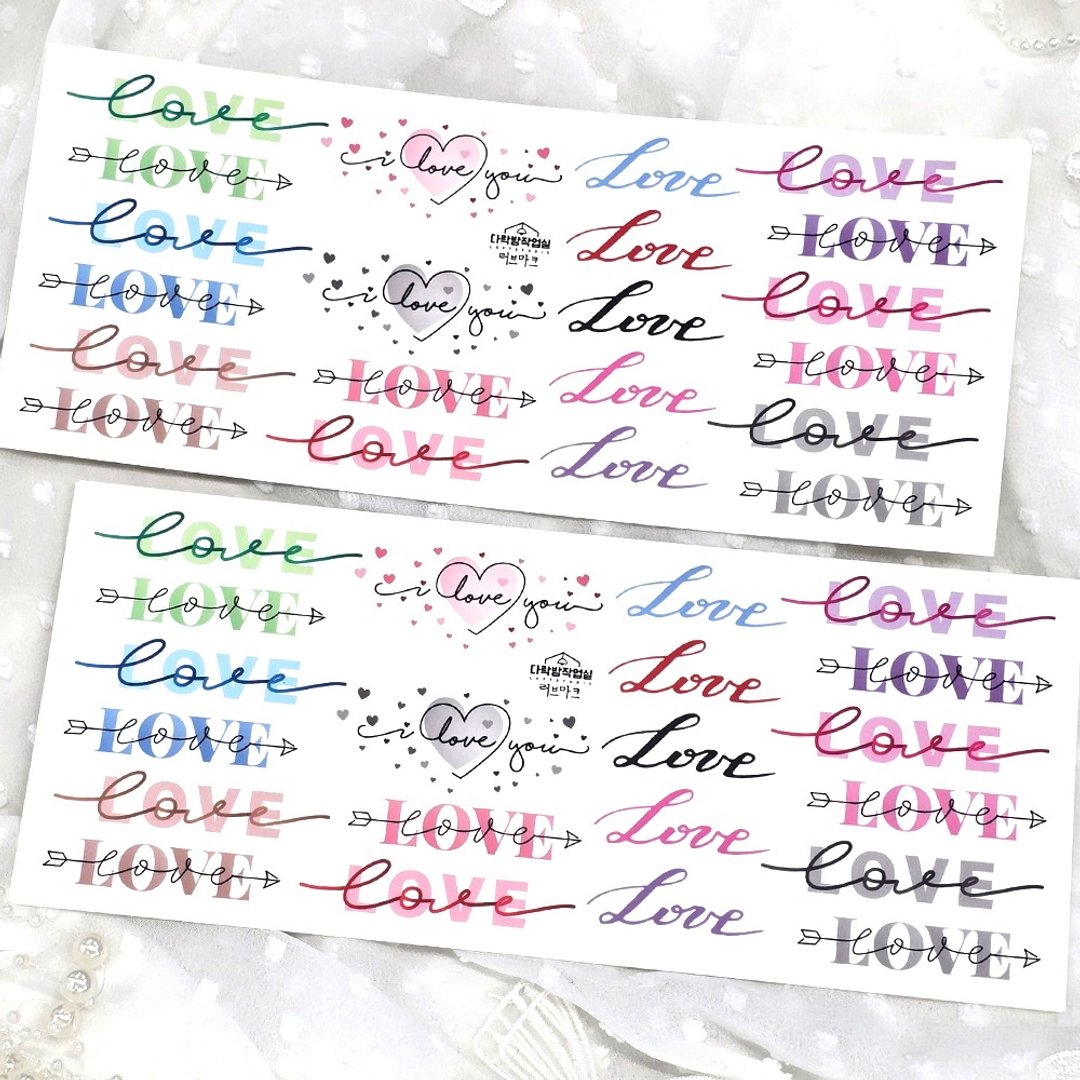 love LOVE
LOVE love
love LOVE
LOVE love
love LOVE
LOVE love
i love you
다락방작업실
러브마크
i love you
LOVE love
love LOVE
Love
Love
Love
Love
Love
love LOVE
LOVE love
love LOVE
LOVE love
love LOVE
LOVE love
love LOVE
LOVE love
love LOVE
LOVE love
love LOVE
LOVE love
i love you
다락방작업실
러브마크
i love you
LOVE love
love LOVE
Love
Love
Love
Love
Love
love LOVE
LOVE love
love LOVE
LOVE love
love LOVE
LOVE love